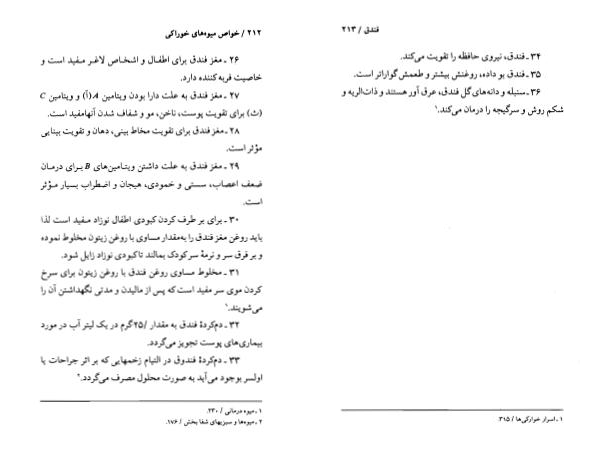 ۲۱۲ / خواص میوه‌های خوراکی
۲۶ ـ مغز فندق برای اطفال و اشخاص لاغر مفید است و
خاصیت فربه‌کننده دارد.
۲۷ ـ مغز فندق به علت دارا بودن ویتامین A (آ) و ویتامین C
(ث) برای تقویت پوست، ناخن، مو و شفاف شدن آنهامفید است.
۲۸ ـ مغز فندق برای تقویت مخاط بینی، دهان و تقویت بینایی
مؤثر است.
۲۹ ـ مغز فندق به علت داشتن ویتامین‌های B برای درمان
ضعف اعصاب، سستی و خمودی، هیجان و اضطراب بسیار مؤثر
است.
۳۰ ـ برای بر طرف کردن کبودی اطفال نوزاد مفید است لذا
باید روغن مغز فندق را به‌مقدار مساوی با روغن زیتون مخلوط نموده
و بر فرق سر و نرمهٔ سر کودک بمالند تاکبودی نوزاد زایل شود.
۳۱ ـ مخلوط مساوی روغن فندق با روغن زیتون برای سرخ
کردن موی سر مفید است که پس از مالیدن و مدتی نگهداشتن آن را
می‌شویند.۱
۳۲ ـ دم‌کردهٔ فندق به مقدار /۲۵گرم در یک لیتر آب در مورد
بیماری‌های پوست تجویز می‌گردد.
۳۳ ـ دم‌کردهٔ فندوق در التیام زخمهایی که بر اثر جراحات یا
اولسر بوجود می‌آید به صورت محلول مصرف می‌گردد.۲
۱ ـ میوه درمانی / ۲۳۰.
۲ ـ میوه‌ها و سبزیهای شفا بخش / ۱۷۶.
فندق / ۲۱۳
۳۴ ـ فندق، نیروی حافظه را تقویت می‌کند.
۳۵ ـ فندق بو داده، روغنش بیشتر و طعمش گواراتر است.
۳۶ ـ سنبله و دانه‌های گل فندق، عرق آور هستند و ذات‌الریه و
شکم روش و سرگیجه را درمان می‌کند.۱
۱ ـ اسرار خوارکی‌ها / ۳۱۵.